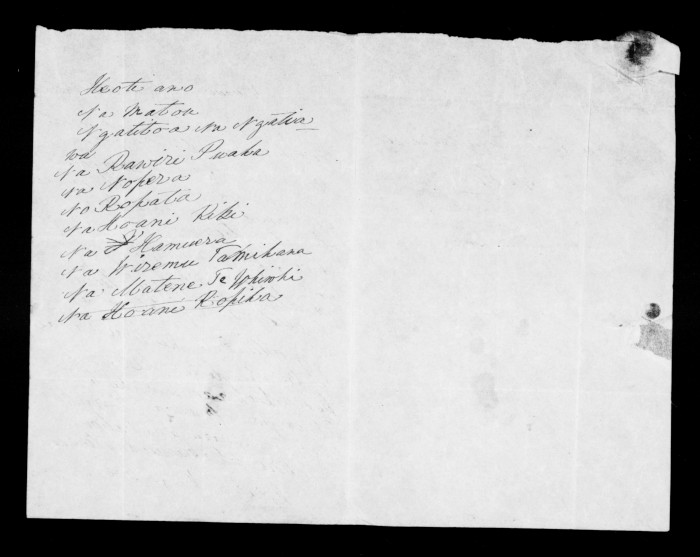 Heoti ano
Na Matou
Ngatitoa Na Ngatia
wa
Na Rawiri Puaha
Na Nopera
No Ropata
Na Hoani Kiki
Na Hamuera
Na Wiremu Tamihana
Na Matene Te Whiwhi
Na Hoani Ropiha